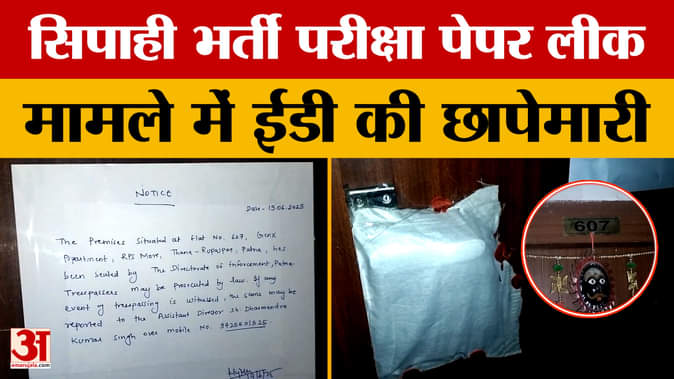 सिपाही भर्ती परीक्षा पेपर लीक
मामले में ईडी की छापेमारी
NOTICE
Date- 19.06.2025
The Premises Situated at flat No. 607, Genx
Apartment, RPS More, Thana- Rupaspur, Patna, has
been sealed by The Directorate of Enforcement, Patna
Trespassers may be prosecuted by law. If any
event of trespassing is witnessed, the same may be
reported to the Assistant Director Sh Dharmendra
Kumar Singh over mobile No.
607
अ
amarujala.com